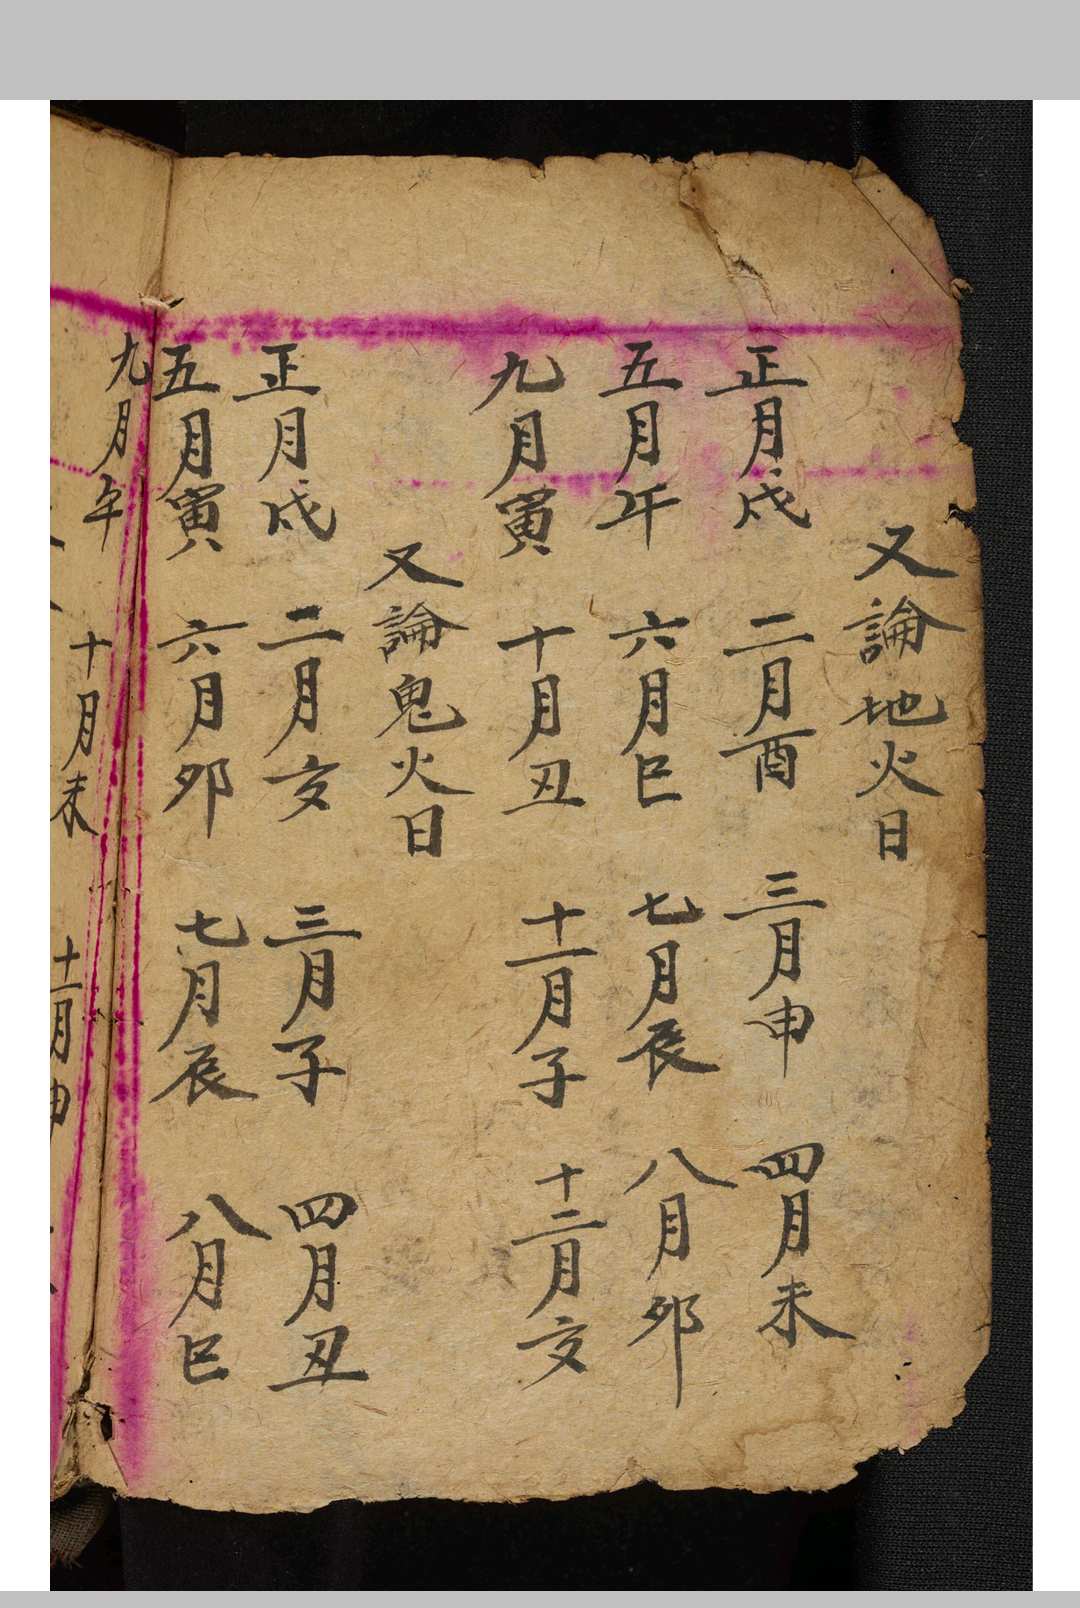 又論地火日
正月戌 二月酉 三月申 四月未
五月午 六月巳 七月辰 八月卯
九月寅 十月丑 十一月子 十二月亥
又論鬼火日
正月戌 二月亥 三月子 四月丑
五月寅 六月卯 七月辰 八月巳
九月午 十月未 十一月申